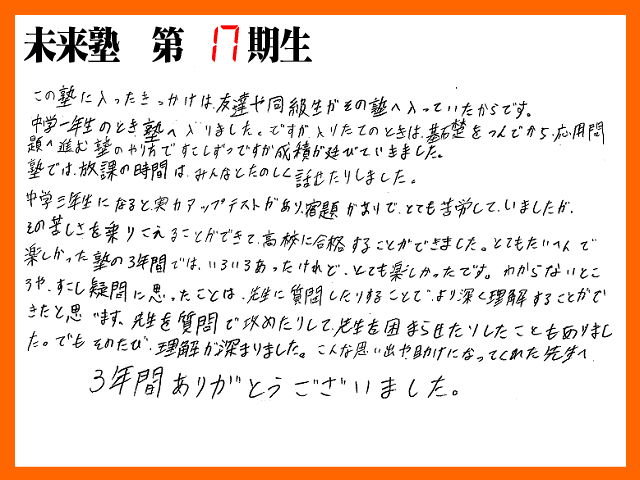 未来塾 第 17 期生
この塾に入ったきっかけは、友達や同級生がその塾へ入っていたからです。
中学一年生のとき塾へ入りました。ですが入りたてのときは、基礎をつんでから、応用問
題へ進む塾のやり方ですこしずつですが成積が延びていきました。
塾では、放課の時間は、みんなとたのしく話せたりしました。
中学三年生になると、実力アップテストがあり、宿題がありで、とても苦労して、いましたが、
その苦しさを乗りこえることができて、高校に合格することができました。とてもたいへんで
楽しかった塾の3年間では、いろいろあったけれど、とても楽しかったです。わからないとこ
ろや、すこし疑問に思ったことは、先生に質問したりすることで、より深く理解することがで
きたと思います。先生を質問で攻めたりして、先生を困まらせたりしたこともありまし
た。でもそのたび、理解が深まりました。こんな思い出や助けになってくれた先生へ
3年間ありがとうございました。